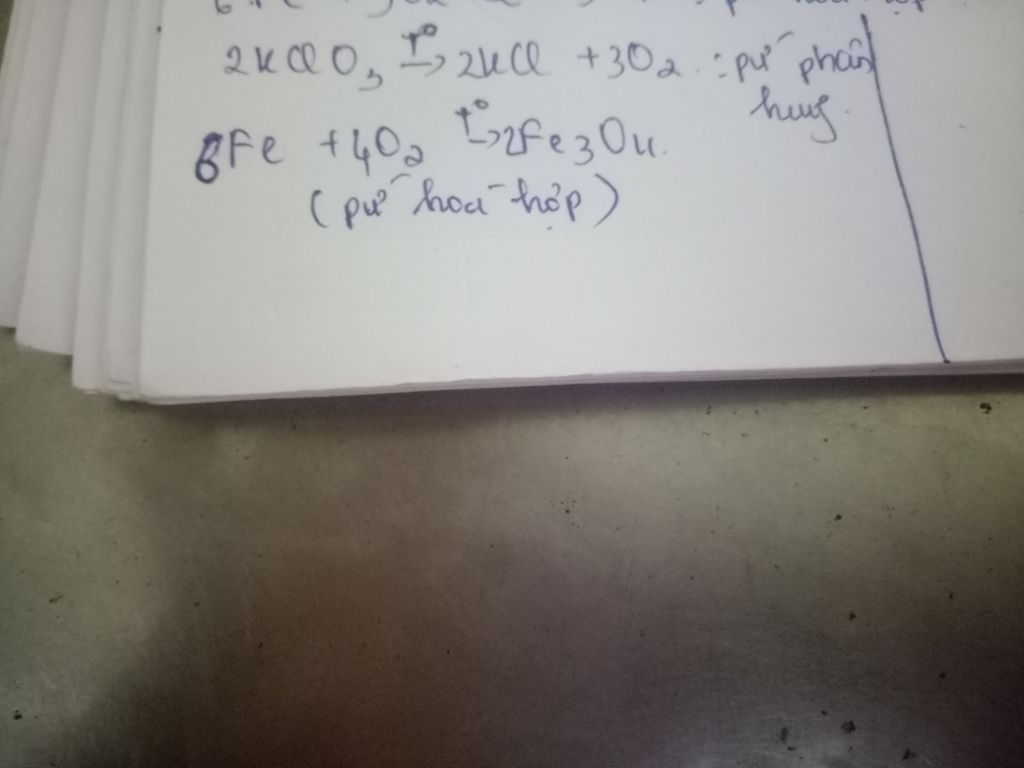 2KClO₃ t°→ 2KCl + 3O₂ : pứ phân
hủy.
6Fe + 4O₂ t°→ 2Fe₃O₄.
(pứ hoá hợp)